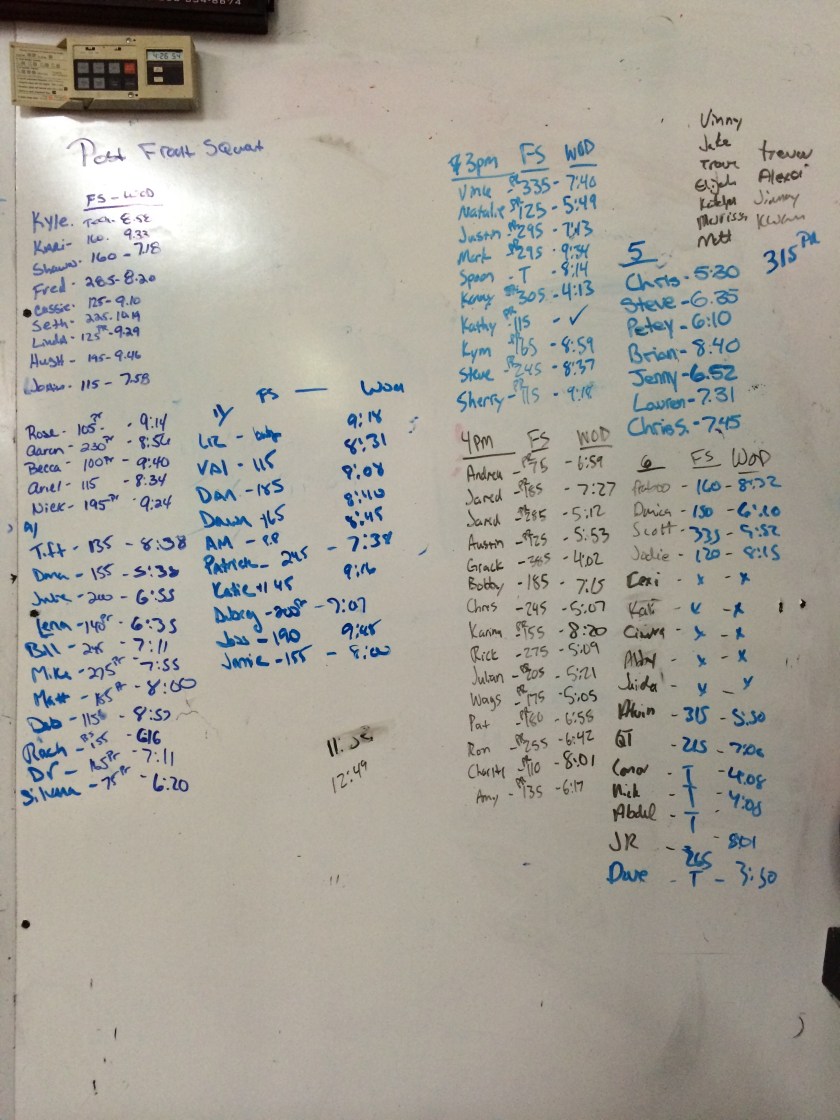 Post Front Squat
FS - WOD
Kyle. Tech. 8.58
Kari- 160. 9.33
Shawn. 160 - 7.18
Fred - 285-8.20
Cassie. 125-9.10
Seth- 225.
Linda- 125 PR-9.29
Hugh - 195-9.46
115 - 7.58
Rose- 105 PR - 9:14
Aaron - 230 PR - 8:56
Becca - 100 PR - 9:40
Ariel - 115 8:34
Nick - 195 PR - 9:24
9/
Tiff - 135 - 8:38
Dana - 155 - 5:38
Julie - 200 - 6:55
Lena - 140 PR - 6:35
Bill - 7:11
Mike - 275 PR - 7:55
Matt - 185 PR - 8:00
Deb - 115 - 8:57
Rach - 155 616
Dr - 165 PR - 7:11
Silvana - 75 PR - 6:20
FS — WOD
11/
Liz - 9:18
Val - 115 8:31
Dan - 185 9:08
Dawn - 165 8:40
AM - 8:45
Patrick - 245 - 7:38
Katie - 145 9:16
200 PR - 7:07
Jess - 190 9:45
Jamie - 155 - 8:00
12:49
3pm FS WOD
Vince - PR 335 - 7:40
Natalie PR 125 - 5:49
Justin PR 295 - 7:13
Mark - PR 295 - 9:54
Spoon - T - 8:14
Kenny PR 305 - 4:13
Kathy PR 115 - ✓
Kym PR 165 - 8:59
Steve PR 245 - 8:37
Sherry - PR 115 - 9:18
4pm FS WOD
Andrea - PR 75 - 6:59
Jared - PR 185 - 7:27
Jared - PR 285 - 5:12
Austin - PR 225 - 5:53
Grack - 285 - 4:02
Bobby - 185 - 7:15
Chris - 245 - 5:07
Karina PR 155 - 8:20
Rick - 275 - 5:09
Julian - PR 205 - 5:21
Wags - PR 175 - 5:05
Pat - PR 180 - 6:55
Ron - PR 255 - 6:42
Charity - PR 110 - 8:01
Amy - PR 135 - 6:17
Vinny
Jake
Trove trevor
Elijah Alexa
Katelyn Jimmy
Marissa
Matt
315 PR
5
Chris - 5:30
Steve - 6.35
Petey - 6:10
Brian - 8.40
Jenny - 6.52
Lauren - 7.31
Chris S. - 7.45
6 FS WOD
- 160 - 8:22
Danica - 130 - 6:20
Scott - 335 - 5:52
Jodie - 120 - 8:15
Lexi - x - x
Kali - x - x
Ciarra - x - x
- x - x
Jaida - x - x
- 315 - 5:50
QT - 215 - 7:06
Conor - T - 4:08
Nick - T - 4:08
Abdul - T
JR - 265 - 8:01
Dave - T - 3:50